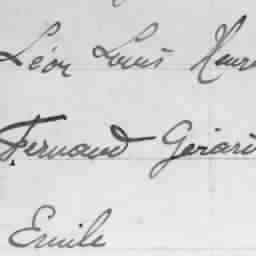 Léon Louis Henri
Fernand Gérard
Emile